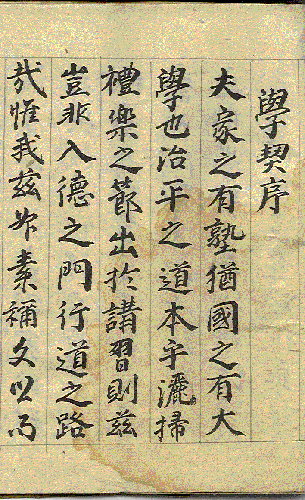 學契序
夫家之有塾猶國之有大
學也治平之道本乎灑掃
禮樂之節出於講習則茲
豈非入德之門行道之路
哉惟我茲 素稱文 而